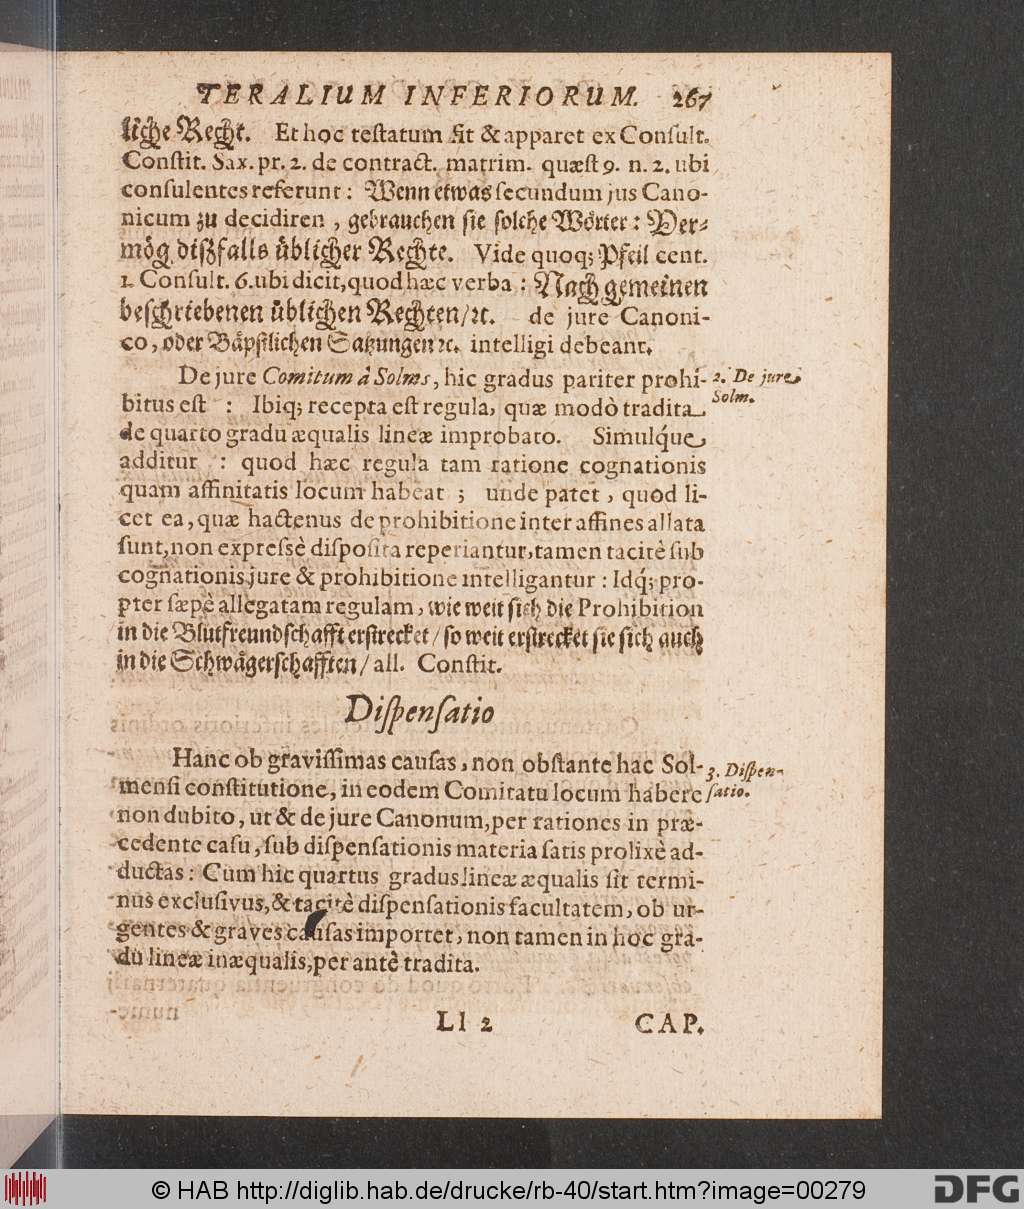 TERALIUM INFERIORUM. 267
liche Recht. Et hoc teſtatum fit & apparet ex Conſult.
Conſtit. Sax. pr. 2. de contract. matrim. quæſt 9. n. 2. ubi
conſulentes referunt: Wenn etwas ſecundum jus Cano-
nicum zu decidiren, gebrauchen ſie ſolche Wörter: Ver-
mög dißfalls üblicher Rechte. Vide quoq; Pfeil cent.
1. Conſult. 6. ubi dicit, quod hæc verba: Nach gemeinen
beſchriebenen üblichen Rechten/ꝛc. de jure Canoni-
co, oder Bäpſtlichen Satzungen ꝛc. intelligi debeant.
De jure Comitum à Solms, hic gradus pariter prohi-
2. De jure
Solm.
bitus eſt: Ibiq; recepta eſt regula, quæ modò tradita
de quarto gradu æqualis lineæ improbato. Simulq́ue
additur: quod hæc regula tam ratione cognationis
quam affinitatis locum habeat; unde patet, quod li-
cet ea, quæ hactenus de prohibitione inter affines allata
ſunt, non expreſsè diſpoſita reperiantur, tamen tacitè ſub
cognationis jure & prohibitione intelligantur: Idq́; pro-
pter ſæpè allegatam regulam, wie weit ſich die Prohibition
in die Blutfreundſchafft erſtrecket/ ſo weit erſtrecket ſie ſich auch
in die Schwägerſchafften/ all. Conſtit.
Diſpenſatio
Hanc ob graviſſimas cauſas, non obſtante hac Sol-
3. Diſpen-
ſatio.
menſi conſtitutione, in eodem Comitatu locum habere
non dubito, ut & de jure Canonum, per rationes in præ-
cedente caſu, ſub diſpenſationis materia ſatis prolixè ad-
ductas: Cum hic quartus gradus lineæ æqualis ſit termi-
nus excluſivus, & tacitè diſpenſationis facultatem, ob ur-
gentes & graves cauſas importet, non tamen in hoc gra-
du lineæ inæqualis, per antè tradita.
Ll 2 CAP.
© HAB http://diglib.hab.de/drucke/rb-40/start.htm?image=00279
DFG